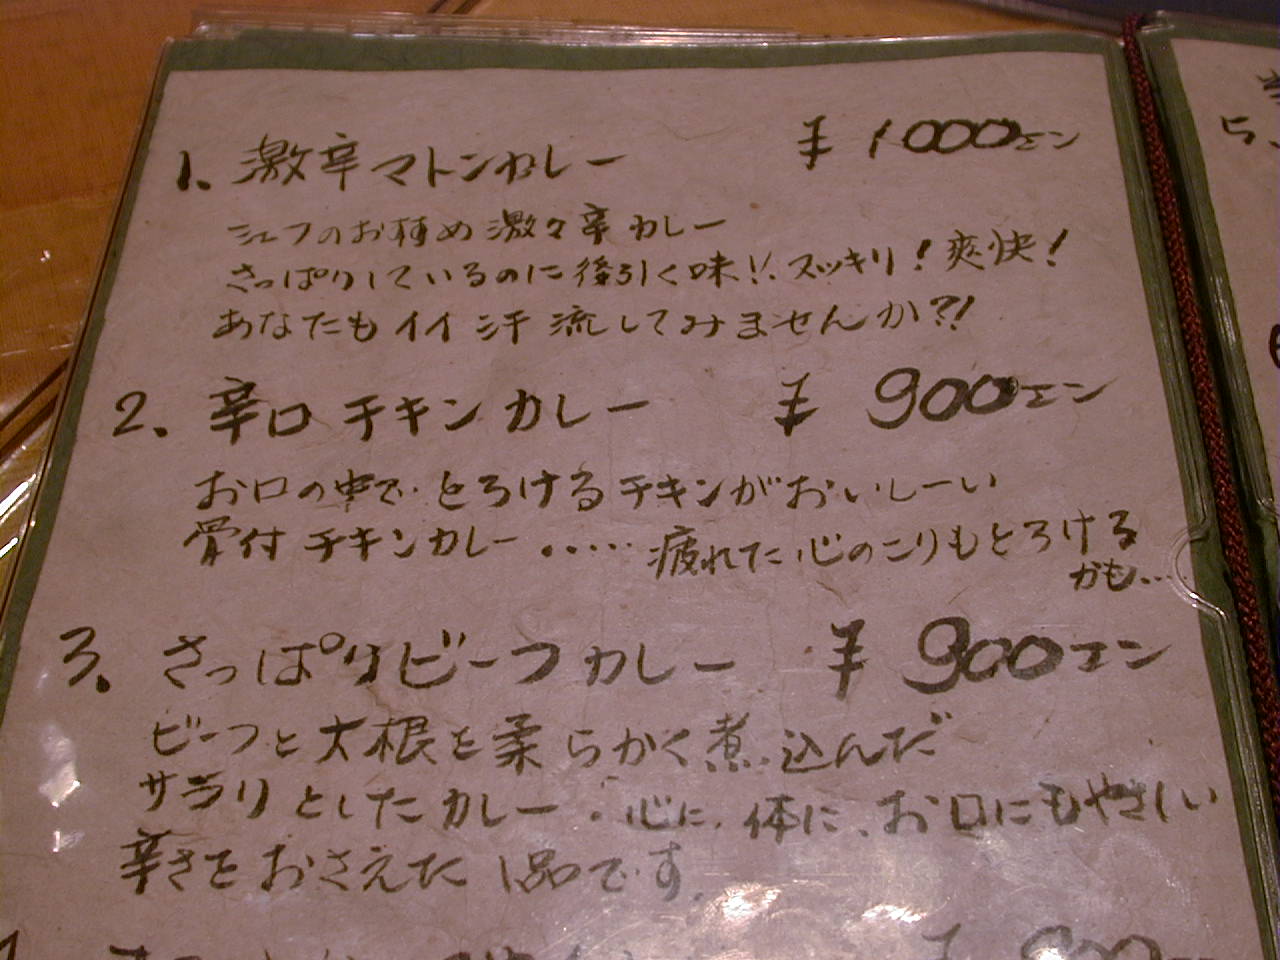 1. 激辛マトンカレー ¥1000エン
シェフのお極め激々辛カレー
さっぱりしているのに後引く味!! スッキリ！爽快！
あなたもイイ汗流してみませんか?!
2. 辛口チキンカレー ¥900エン
お口の中で、とろけるチキンがおいしーい
骨付チキンカレー・・・・・ 疲れた心のこりもとろける
かも…
3. さっぱりビーフカレー ¥900エン
ビーフと大根を柔らかく煮込んだ
サラリとしたカレー。心に、体に、お口にもやさしい
辛さをおさえた1品です。
5.